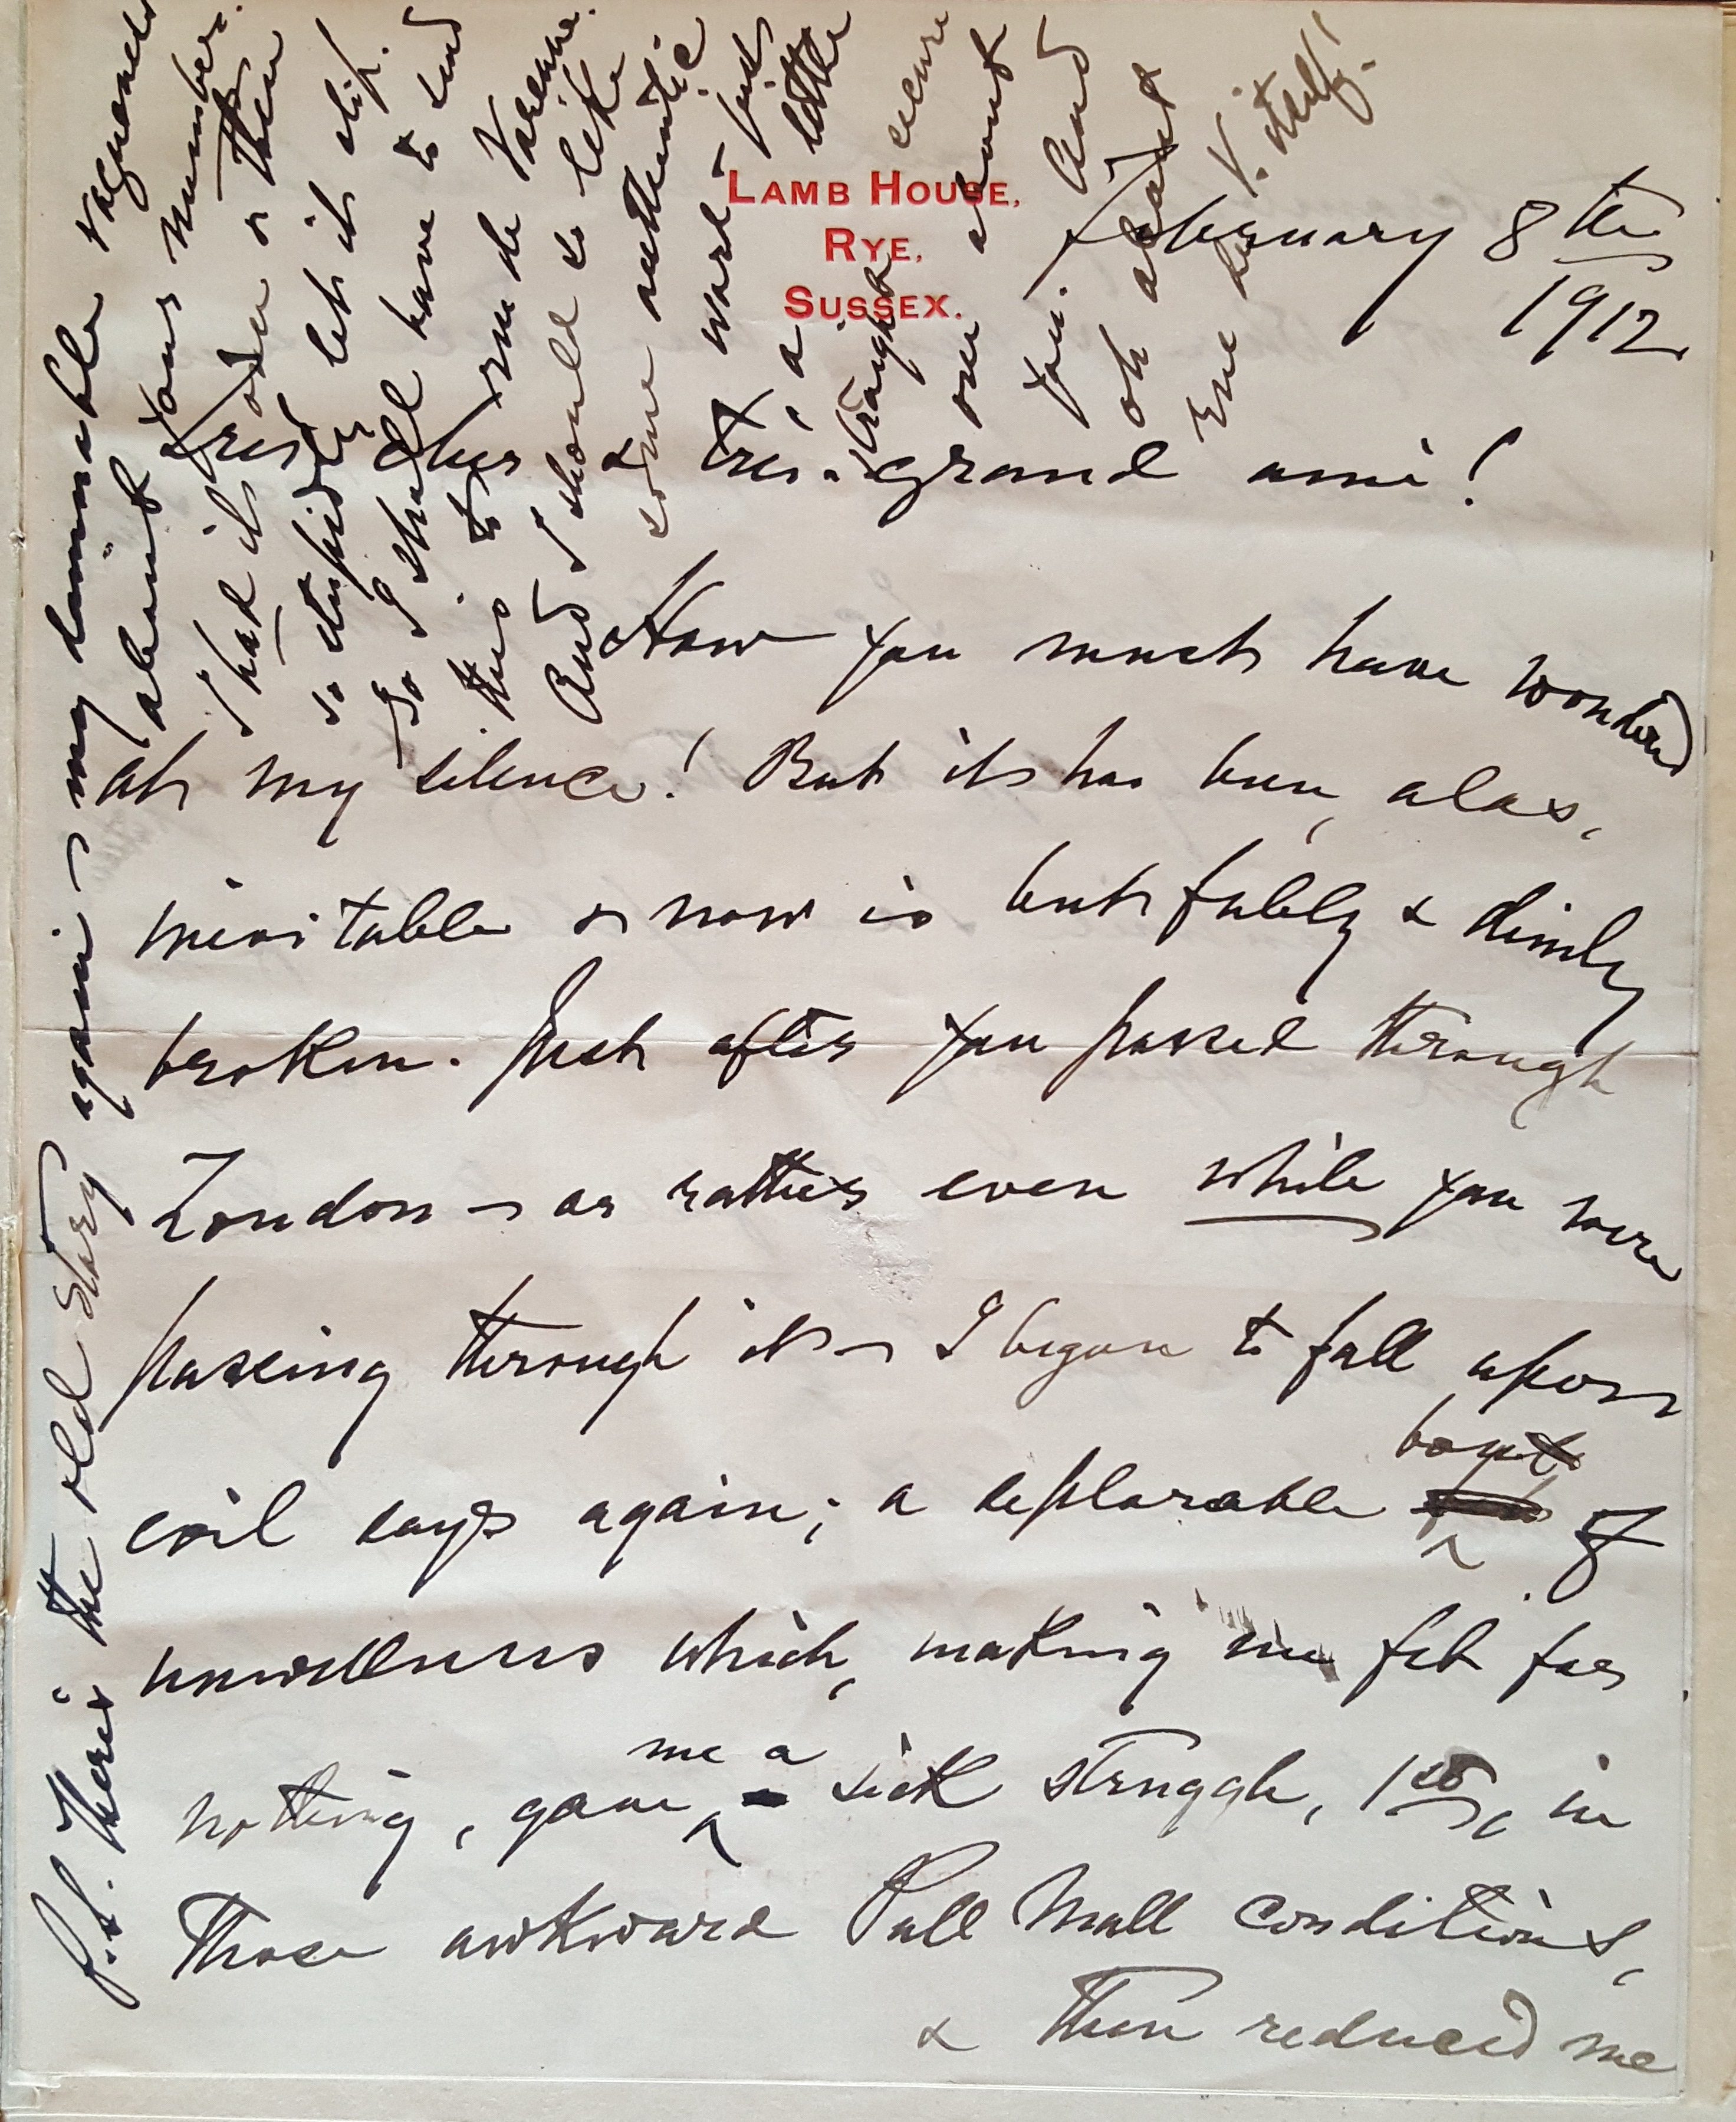 LAMB HOUSE,
RYE,
SUSSEX.
February 8th
1912.
Très-cher & très-grand ami!
How you must have wondered
at my silence! But it has been, alas,
inevitable & now is but feebly & dimly
broken. Just after you passed through
London — or rather even while you were
passing through it — I began to fall upon
evil days again; a deplorable bout of
unwellness which, making me fit for
nothing, gave me a sick struggle, 1st, in
those awkward Pall Mall conditions,
& then reduced me
P.S. There's the old story again — my damnable vagueness
about your number.
I had it & then
so stupidly let it slip.
So I shall have to send
this to rue de Varenne.
And I should so like
some authentic
word — just
a little
straight & secure
one about
you. And
oh about
Ene de V. itself!